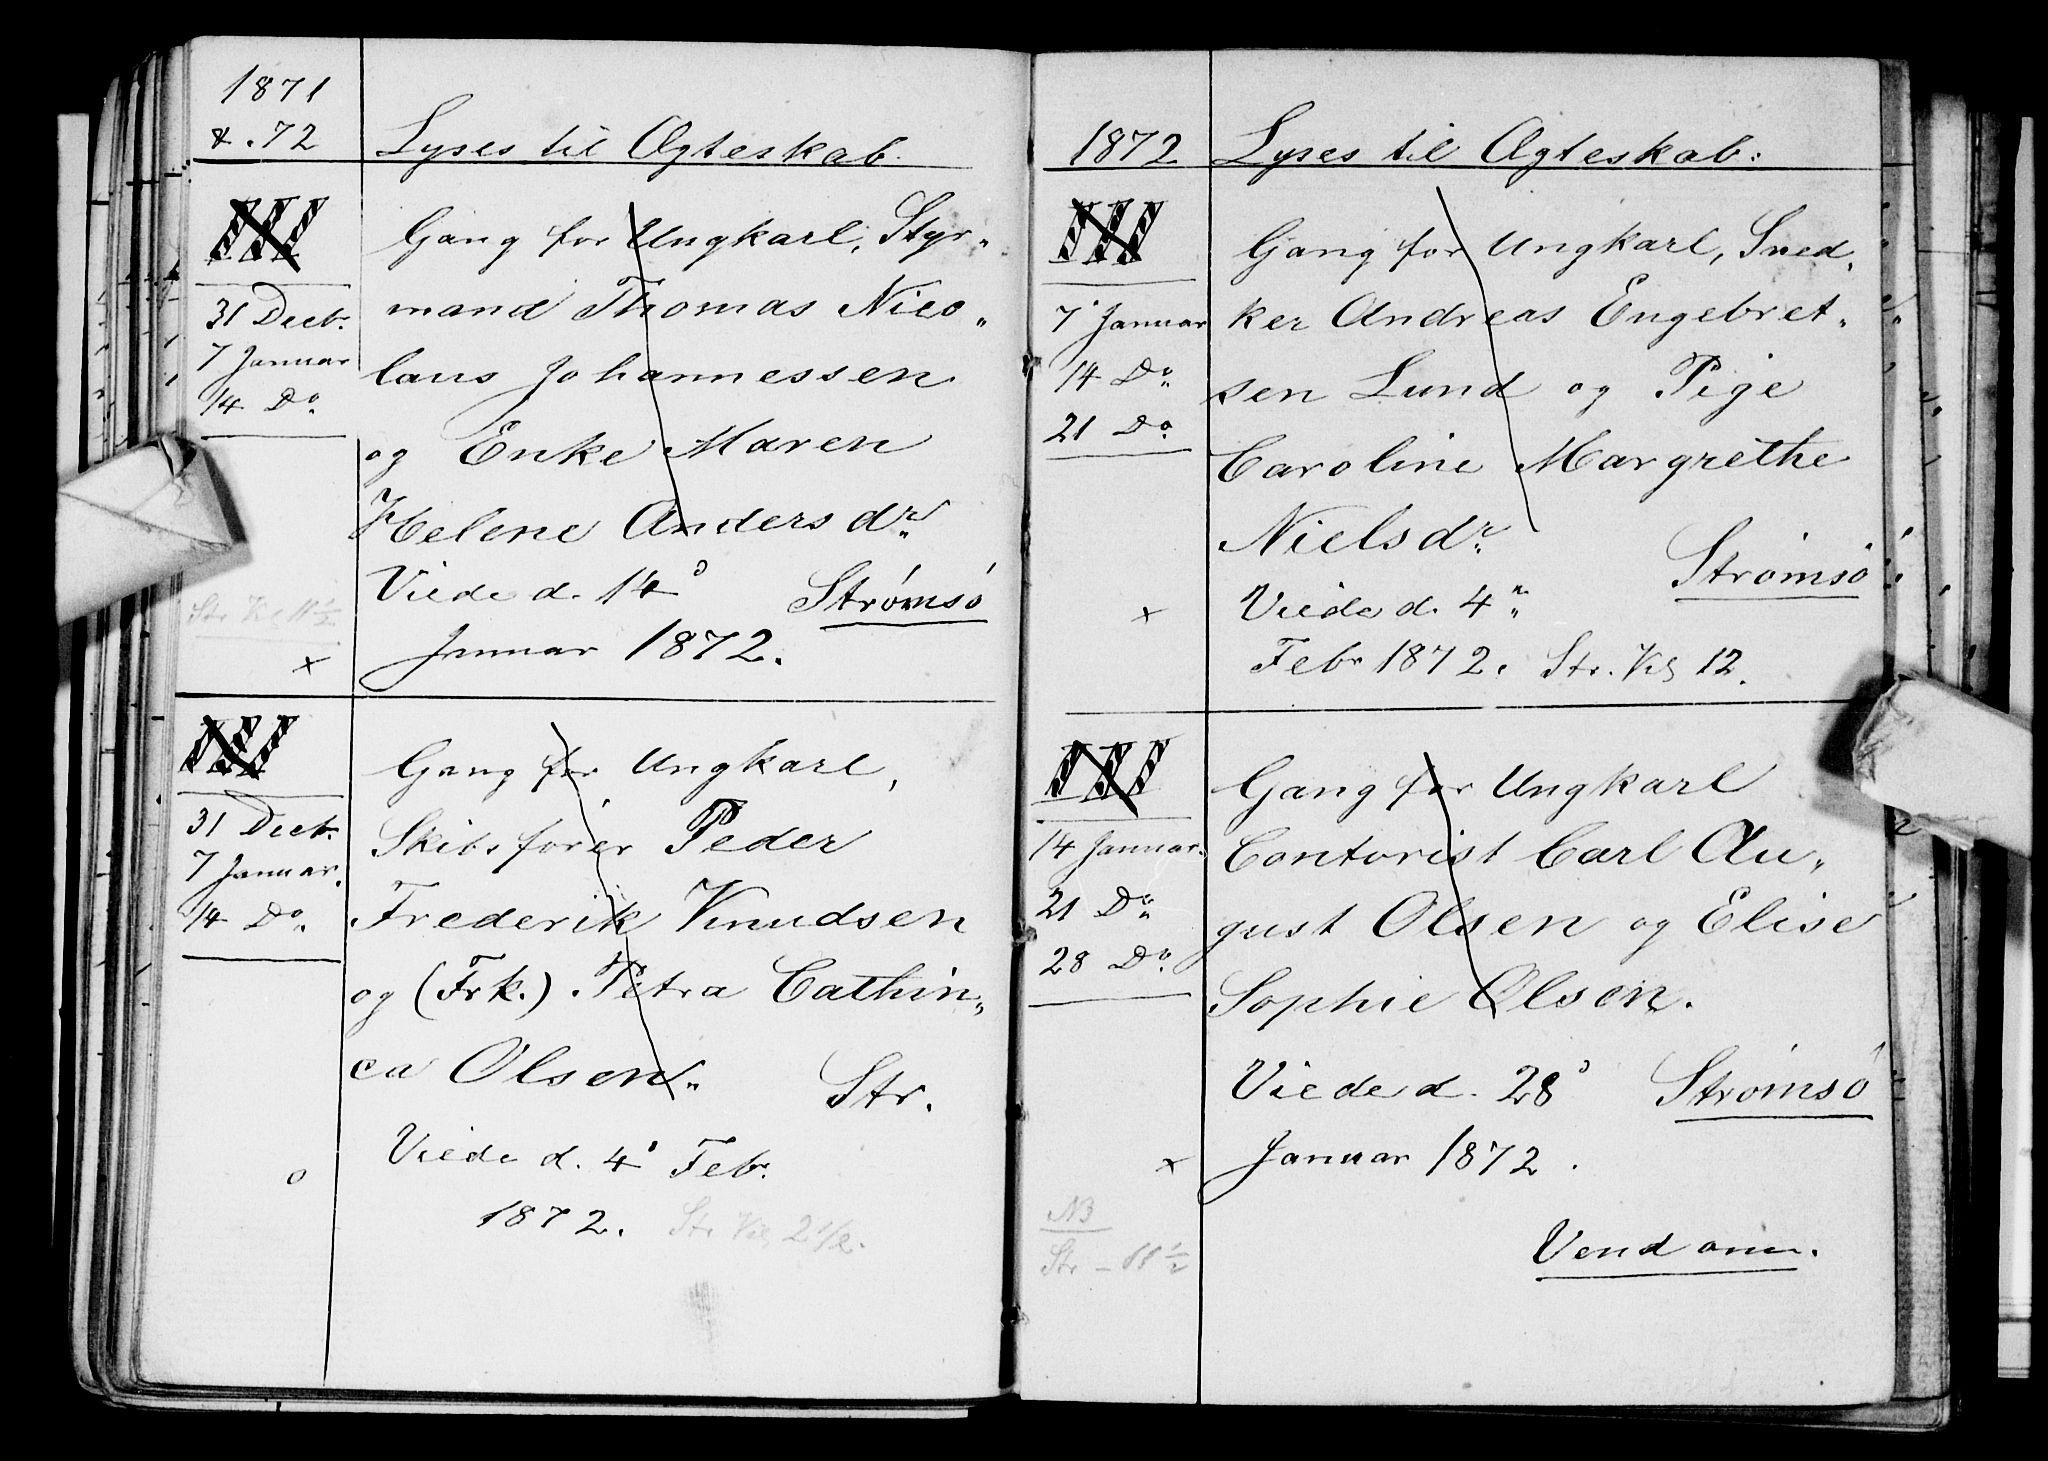 1871
& . 72
Lyses til Ægteskab.
III
31 Decbr.
7 Januar
14 Do.
Gang for Ungkarl, Styr„
mand Thomas Nico„
laus Johannessen
og Enke Maren
Helene Andersdr.
Viede d. 14d Strømsø
Januar 1872.
Str Kl 11 1/2
x
III
31 Decbr.
7 Januar.
14 Do.
Gang for Ungkarl,
Skibsfører Peder
Frederik Knudsen
og (Frk.) Petra Cathin„
ca Olsen.
Str.
o
Viede d. 4d Febr.
1872. Str Kl 2 1/2.
1872
Lyses til Ægteskab.
III
7 Januar
14 Do.
21 Do.
Gang for Ungkarl, Sned„
ker Andreas Engebret„
sen Lund og Pige
Caroline Margrethe
Nielsdr.
Strømsø
x
Viede d. 4
Febr 1872. Str. Kl 12.
III
14 Januar.
21 Do.
28 Do.
Gang for Ungkarl
Contorist Carl Au„
gust Olsen og Elise
Sophie Olsen.
Viede d. 28d Strømsø
x
Januar 1872.
NB
Str – 11 1/2
Vend om.